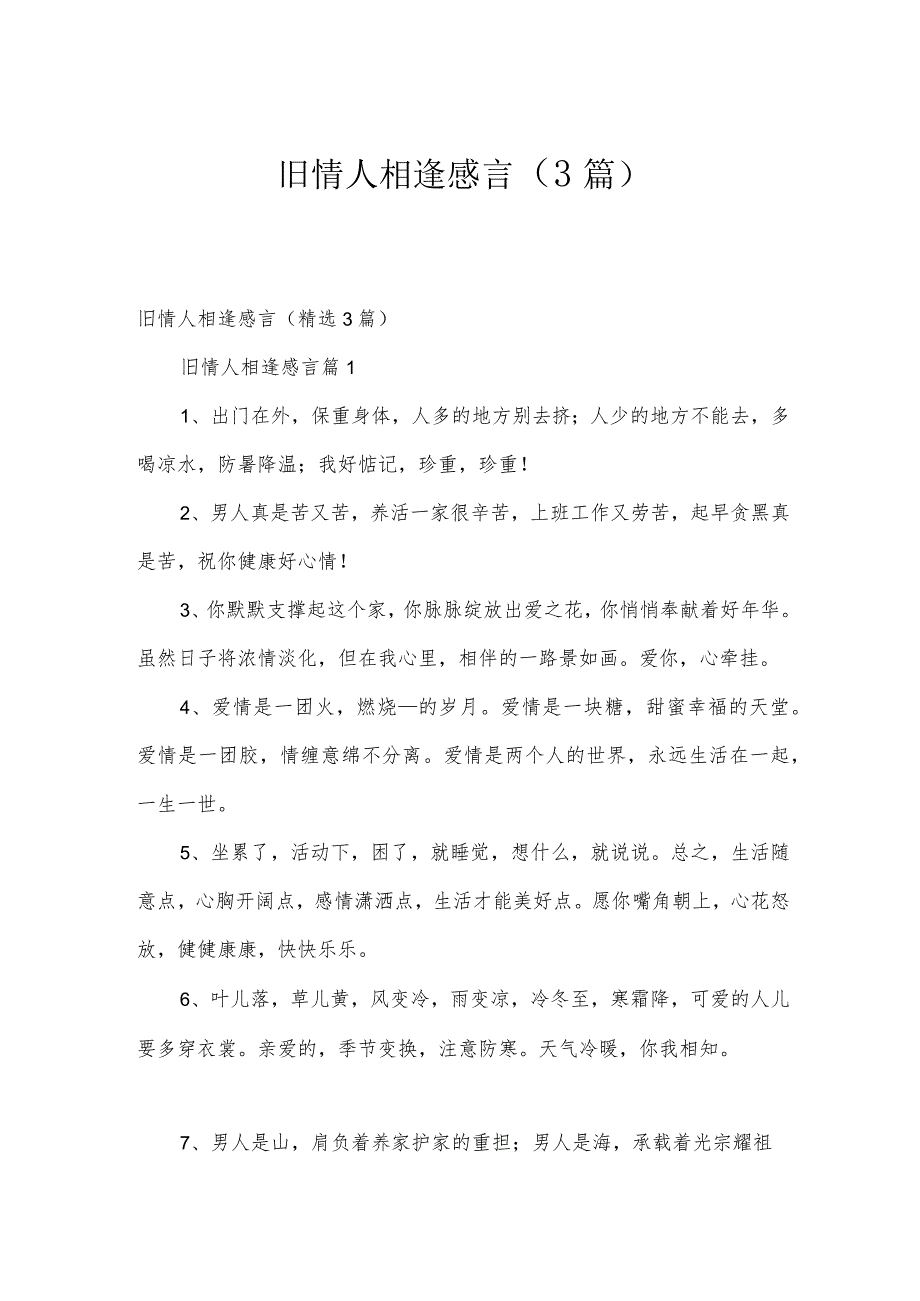 旧情人相逢感言（3篇）
旧情人相逢感言（精选3篇）
旧情人相逢感言篇1
1、出门在外，保重身体，人多的地方别去挤；人少的地方不能去，多
喝凉水，防暑降温；我好惦记，珍重，珍重！
2、男人真是苦又苦，养活一家很辛苦，上班工作又劳苦，起早贪黑真
是苦，祝你健康好心情！
3、你默默支撑起这个家，你脉脉绽放出爱之花，你悄悄奉献着好年华。
虽然日子将浓情淡化，但在我心里，相伴的一路景如画。爱你，心牵挂。
4、爱情是一团火，燃烧—的岁月。爱情是一块糖，甜蜜幸福的天堂。
爱情是一团胶，情缠意绵不分离。爱情是两个人的世界，永远生活在一起，
一生一世。
5、坐累了，活动下，困了，就睡觉，想什么，就说说。总之，生活随
意点，心胸开阔点，感情潇洒点，生活才能美好点。愿你嘴角朝上，心花怒
放，健健康康，快快乐乐。
6、叶儿落，草儿黄，风变冷，雨变凉，冷冬至，寒霜降，可爱的人儿
要多穿衣裳。亲爱的，季节变换，注意防寒。天气冷暖，你我相知。
7、男人是山，肩负着养家护家的重担；男人是海，承载着光宗耀祖